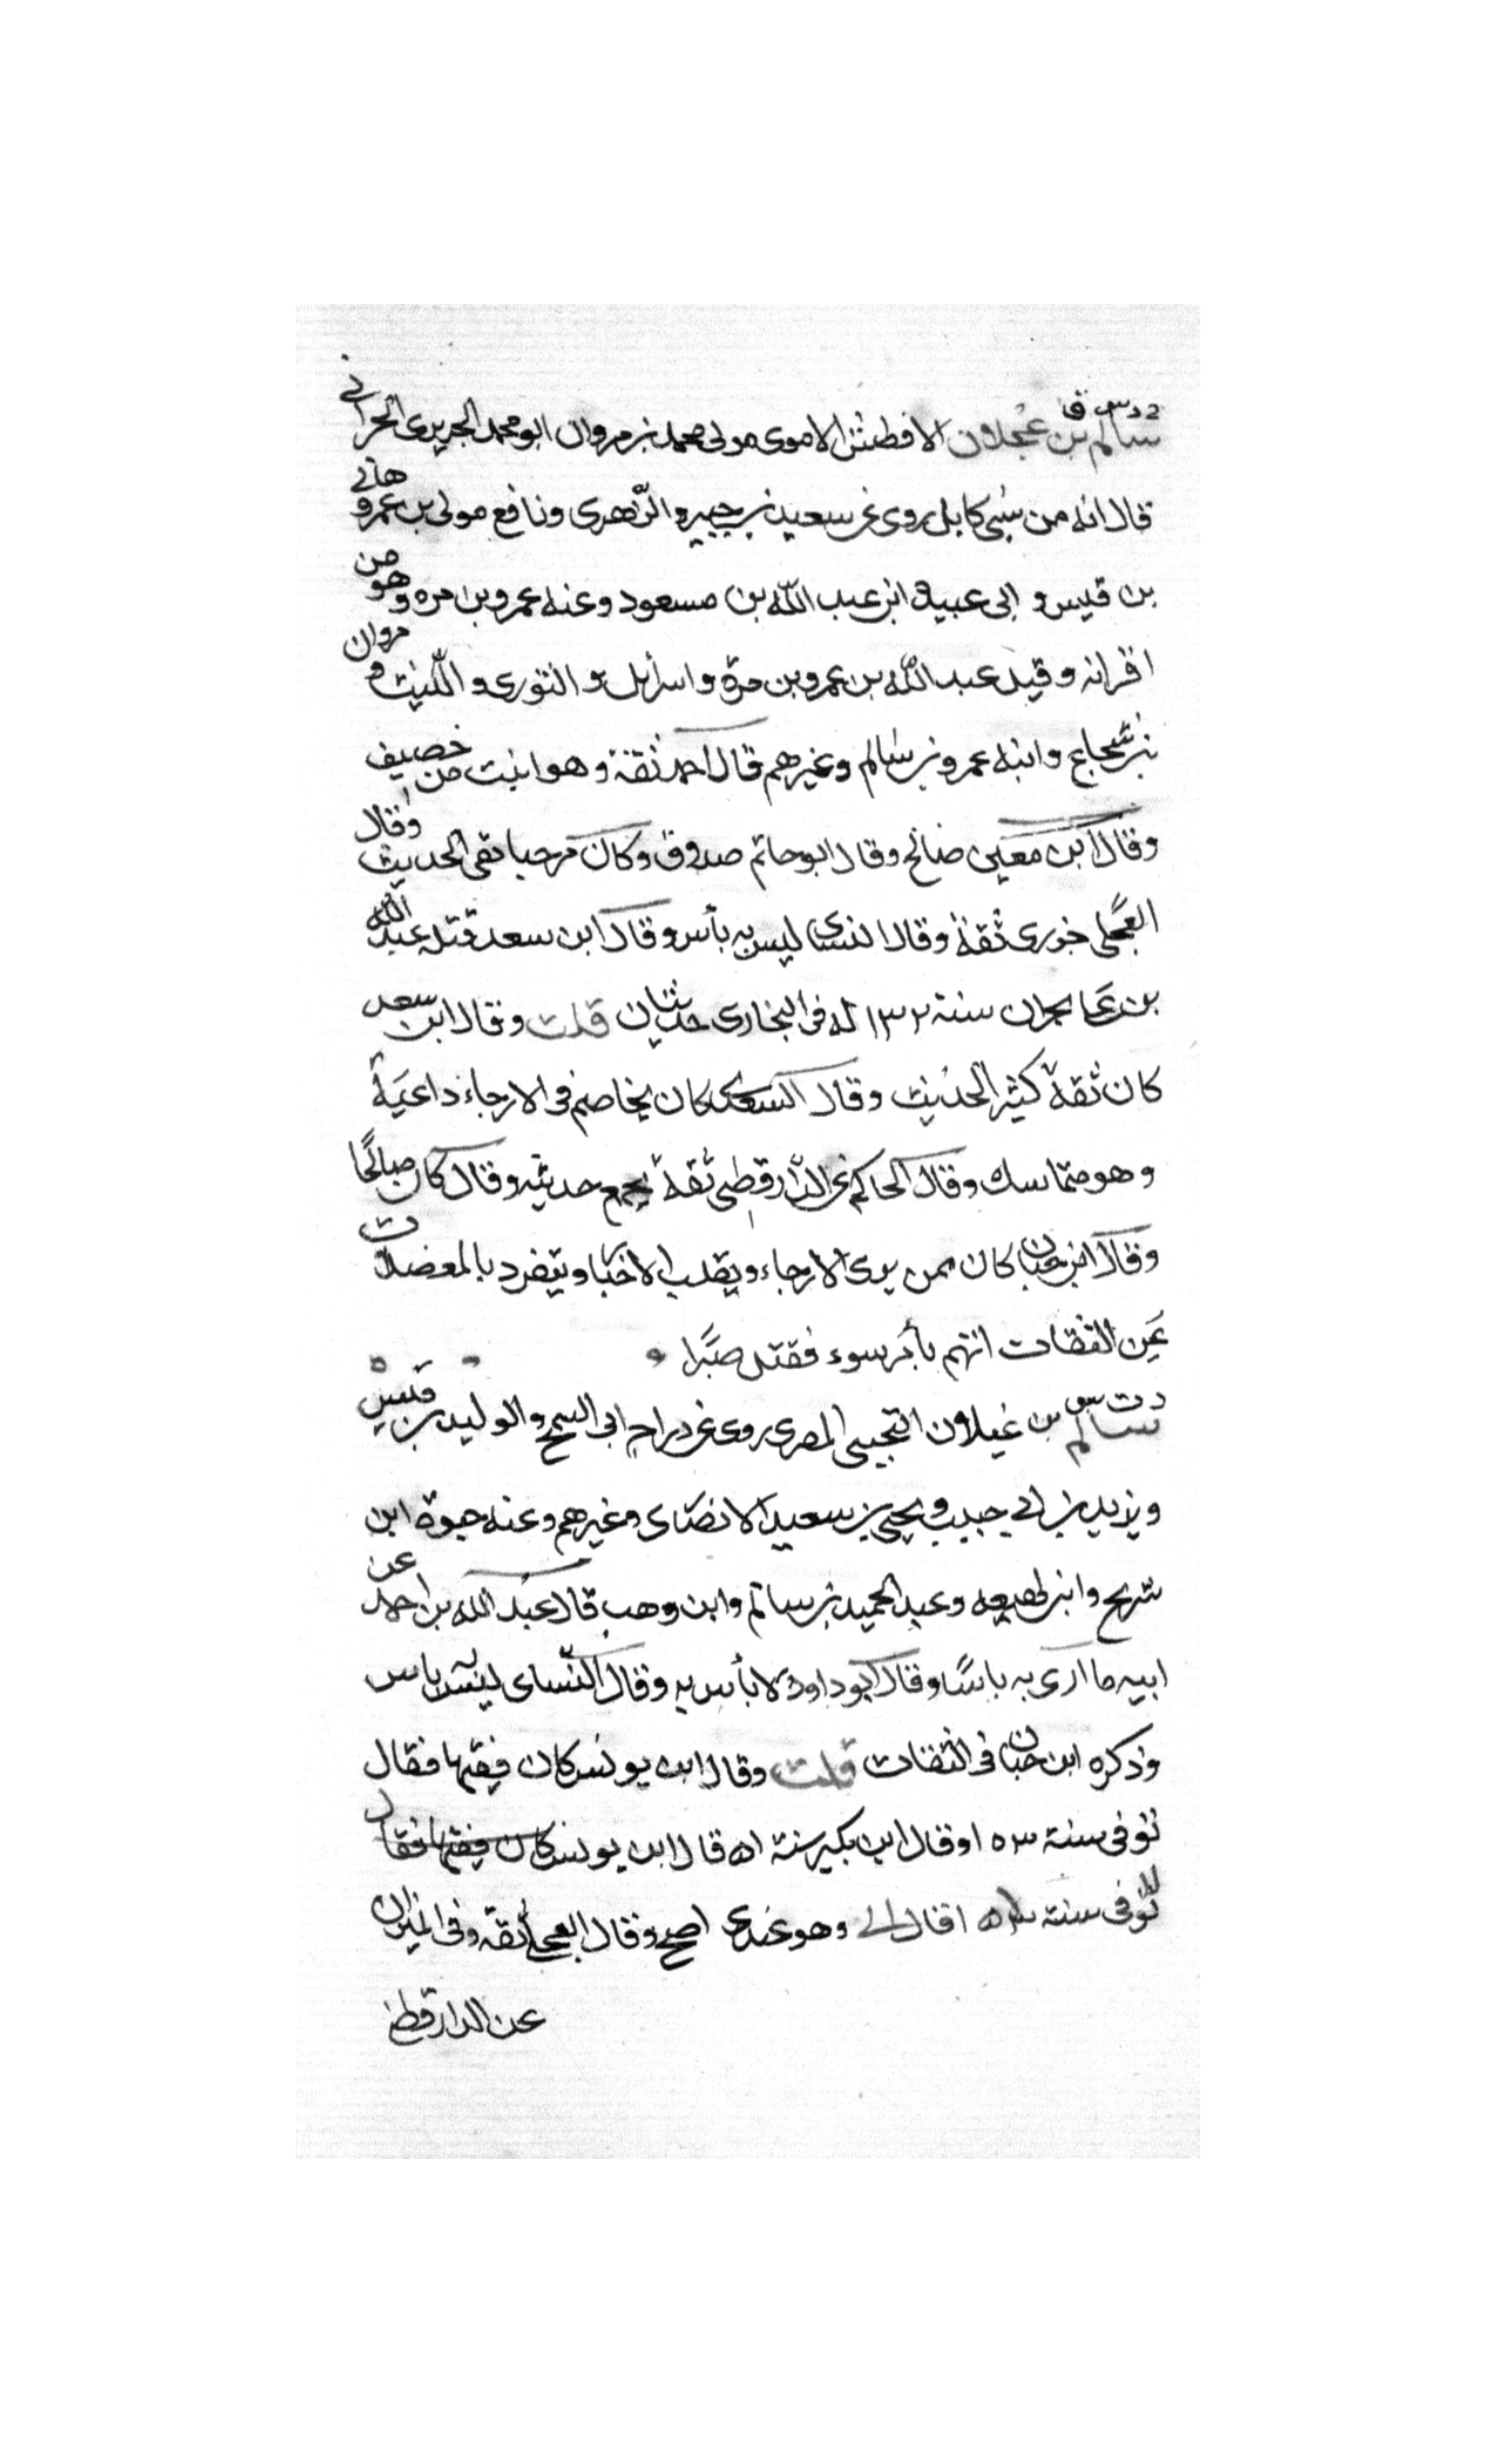 خ د س ق
سالم بن عجلان الافطس الاموى مولى محمد بن مروان ابو محمد الجزيرى الحرانى
قال انه من سبى كابل روى عن سعيد بن جبير والزهرى ونافع مولى بن عمر وهانى
بن قيس و ابى عبيدة ابن عبد الله بن مسعود وعنه عمرو بن مره وهو من
اقرانه وقيل عبد الله بن عمرو بن مرة واسرائل و الثورى و الليث و مروان
بن شجاع وابنه عمر بن سالم وغيرهم قال احمد ثقة وهو اثبت من خصيف
وقال ابن معين صالح وقال ابو حاتم صدوق وكان مرجيا نقى الحديث وقال
العجلى جزرى ثقة وقال النسائى ليس به بأس وقال ابن سعد قتله عبد الله
بن على بحران سنة ١٣٢ له فى البخارى حديثان قلت وقال ابن سعد
كان ثقة كثير الحديث وقال السعدى كان يخاصم فى الارجاء داعية
وهو متماسك وقال الحاكم عن الدارقطى ثقة يجمع حديثه وقال كان صالحًا
وقال ابن حبان كان ممن يرى الارجاء ويقلب الاخبار ويتفرد بالمعضلات
عن الثقات اتهم بأمر سوء فقتل صبرًا
د ت س
سالم بن غيلان التجيبى المصرى روى عن دراج ابى السمح والوليد بن قيس
ويزيد بن ابى حبيب ويحيى بن سعيد الانصارى وغيرهم وعنه حيوة ابن
شريح وابن لهيعه وعبد الحميد بن سالم وابن وهب قال عبد الله بن احمد عن
ابيه ما ارى به باسًا وقال ابو داود لا بأس به وقال النسائى ليس به باس
وذكره ابن حبان فى الثقات قلت وقال ابن يونس كان فيقها فقال
توفى سنة ١٥٣ وقال ابن بكير سنة ١٥١ قال ابن يونس كان فيقها فقال
توفى سنة ١٥٣ قال لى وهو عندى اصح وقال العجلى ثقة وفى الميزان
عن الدارقطنى